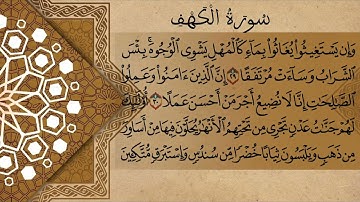 سُورَةُ الْكَهْفِ
وَإِن يَسْتَغِيثُوا۟ يُغَاثُوا۟ بِمَآءٍ كَٱلْمُهْلِ يَشْوِى ٱلْوُجُوهَ ۚ بِئْسَ
ٱلشَّرَابُ وَسَآءَتْ مُرْتَفَقًا ٢٩ إِنَّ ٱلَّذِينَ ءَامَنُوا۟ وَعَمِلُوا۟
ٱلصَّـٰلِحَـٰتِ إِنَّا لَا نُضِيعُ أَجْرَ مَنْ أَحْسَنَ عَمَلًا ٣٠ أُو۟لَـٰٓئِكَ
لَهُمْ جَنَّـٰتُ عَدْنٍ تَجْرِى مِن تَحْتِهِمُ ٱلْأَنْهَـٰرُ يُحَلَّوْنَ فِيهَا مِنْ أَسَاوِرَ
مِن ذَهَبٍ وَيَلْبَسُونَ ثِيَابًا خُضْرًا مِّن سُندُسٍ وَإِسْتَبْرَقٍ مُّتَّكِـِٔينَ